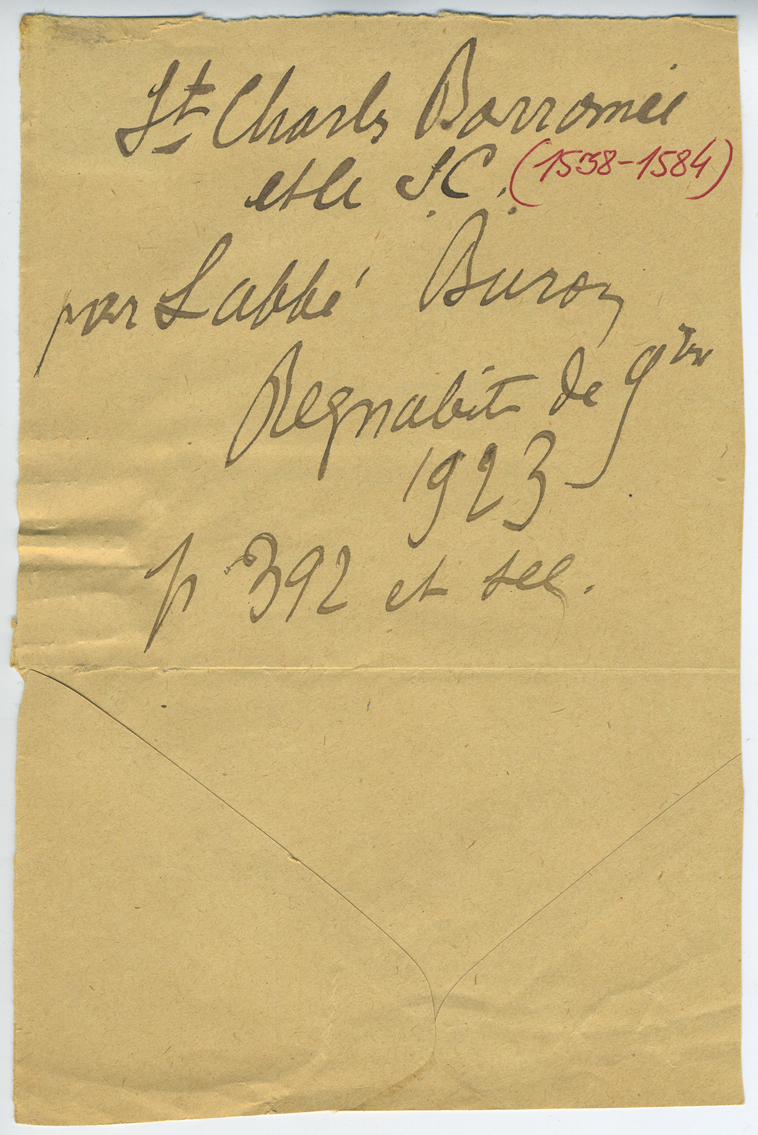 St Charles Borromée
et le S.C. (1538-1584)
par L'abbé Buron
Regnabit de 9bre
1923
p 392 et seq.